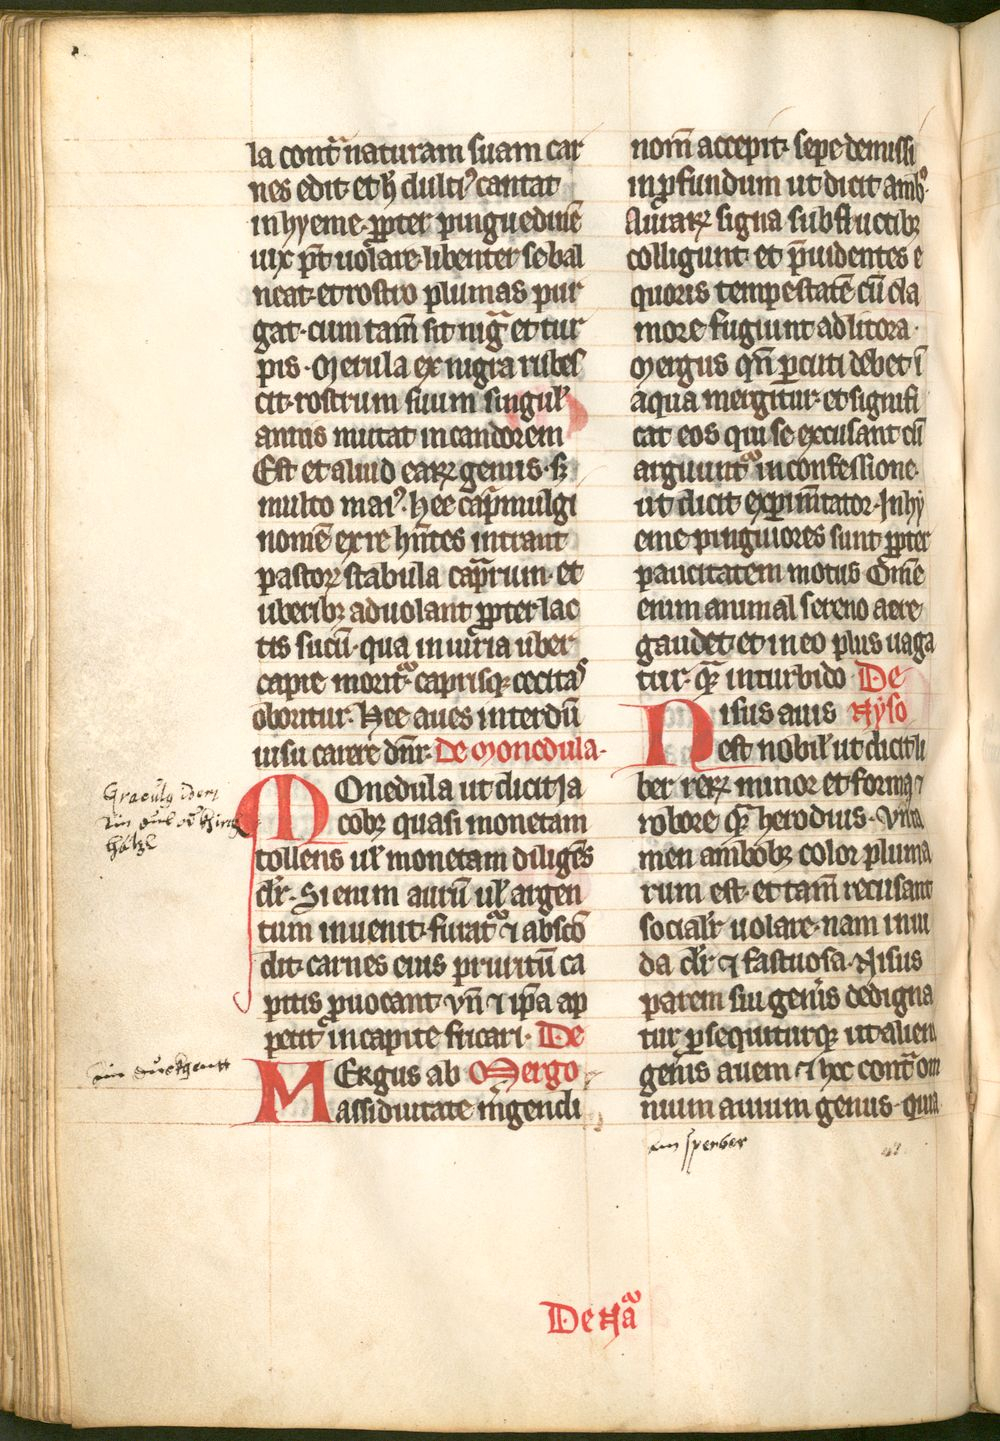 la cont̃ naturam suam car
nes edit et h̃ dulti⁹ cantat
in hyeme. ꝓpter pinguedinē
uix pt̃ uolare. libenter se bal
neat. et rostro plumas pur
gat. cum tam̃ sit nig̃ et tur
pis. Merula ex nigra rubes
cit. rostrum suum singul̃
annis mutat in candorem
Est et aliud earꝝ genus. sꝫ
multo mai⁹. Hee cap̃mulgi
nomē ex re hñtes intrant
pastorꝝ stabula cap̃rum. et
uberibꝫ aduolant ꝓpter lac
tis sucū. qua iniuria uber
capre morit̃. caprisqꝫ cecitas
oboritur. Hee aues interdū
uisu carere dñr. De Monedula.
MOnedula ut dicit Ja
cobꝫ quasi monetam
tollens ul̃ monetam diligẽs
dr̃. Si enim aurū ul̃ argen
tum inuenit. furat̃ ⁊ absco
dit. carnes eius pruritū ca
pitis ꝓuocant. vñ ⁊ ip̃a ap
petit̃ in capite fricari. De
MErgus ab Mergo
assiduitate m̃gendi
nom̃ accepit. sepe demissi
in ꝓfundum ut dicit amb⁹.
Auraꝝ signa sub fluctibꝫ
colligunt. et p̃uidentes e
quoris tempestatē cū cla
more fugiunt ad litora.
Mergus qñ ꝑcuti debet ī
aqua mergitur. et signifi
cat eos qui se excusant cū
arguunt̃ in confessione.
ut dicit exꝑim̃tator. In hy
eme pinguiores sunt ꝓpter
paucitatem motus Omē
enim animal sereno aere
gaudet. et in eo plus uaga
tur. qꝫ in turbido De
Nisus auis Nyso
est nobil̃ ut dicit li
ber rerꝫ minor et forma ⁊
robore qꝫ herodius.
men ambobꝫ color pluma
rum est. et tam̃ recusant
socialr̃ uolare. nam inui
da dr̃ ⁊ fastuosa. Nisus
parem sui gen̾is dedigna
tur ꝑsequiturqꝫ ut alieni
gen̾is auem ⁊ hoc cont̃ om
nium auium genus. quia
Graculꝰ
ein
ein sperber
De Na